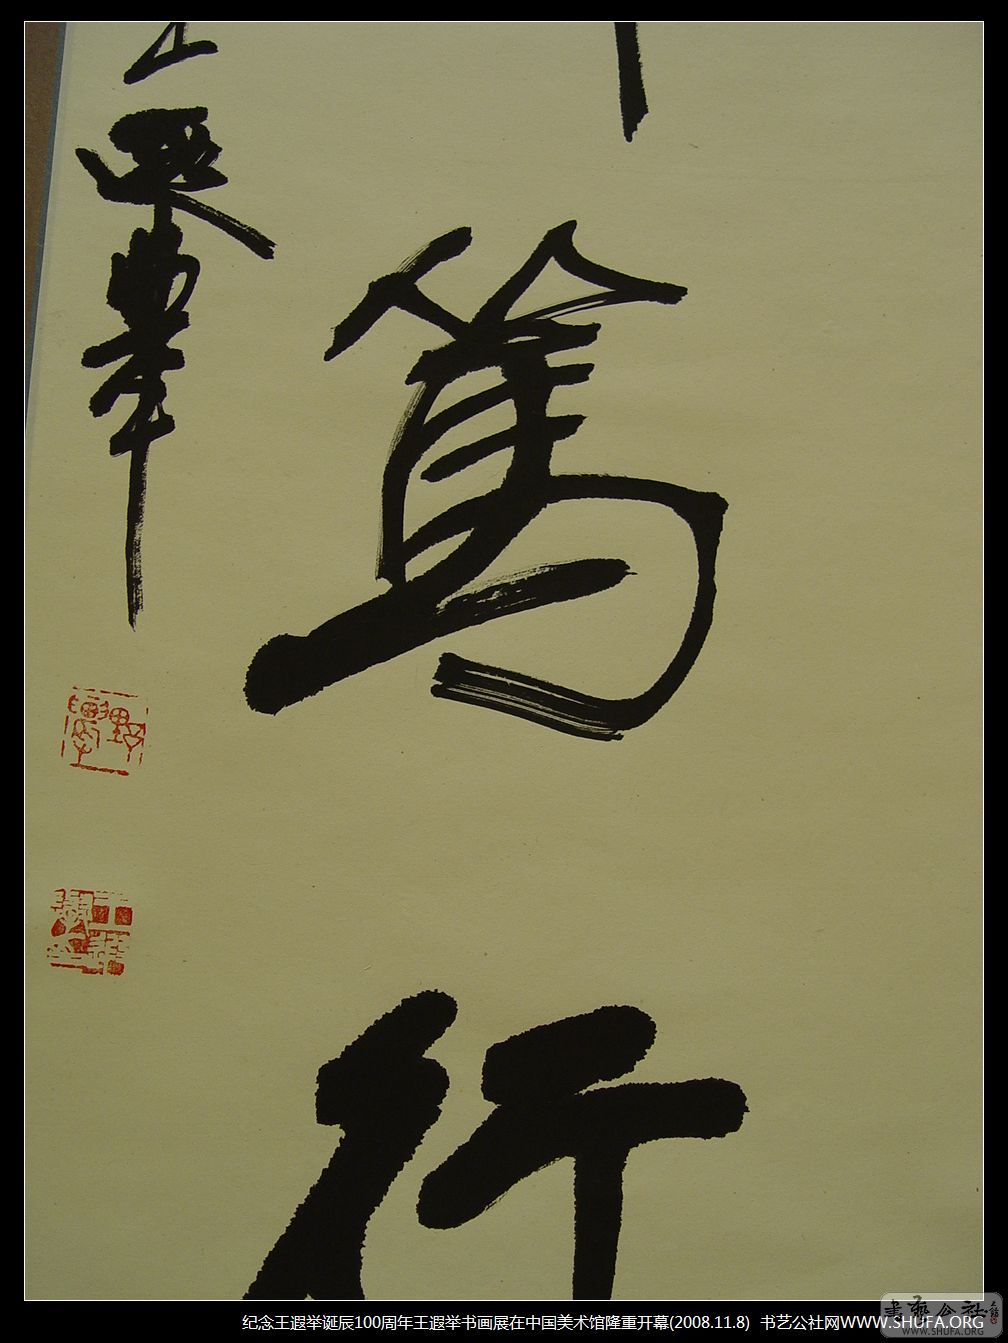 篤
行
王遐舉
纪念王遐举诞辰100周年王遐举书画展在中国美术馆隆重开幕(2008.11.8) 书艺公社网WWW.SHUFA.ORG
書藝公社
www.SHUFA.ORG